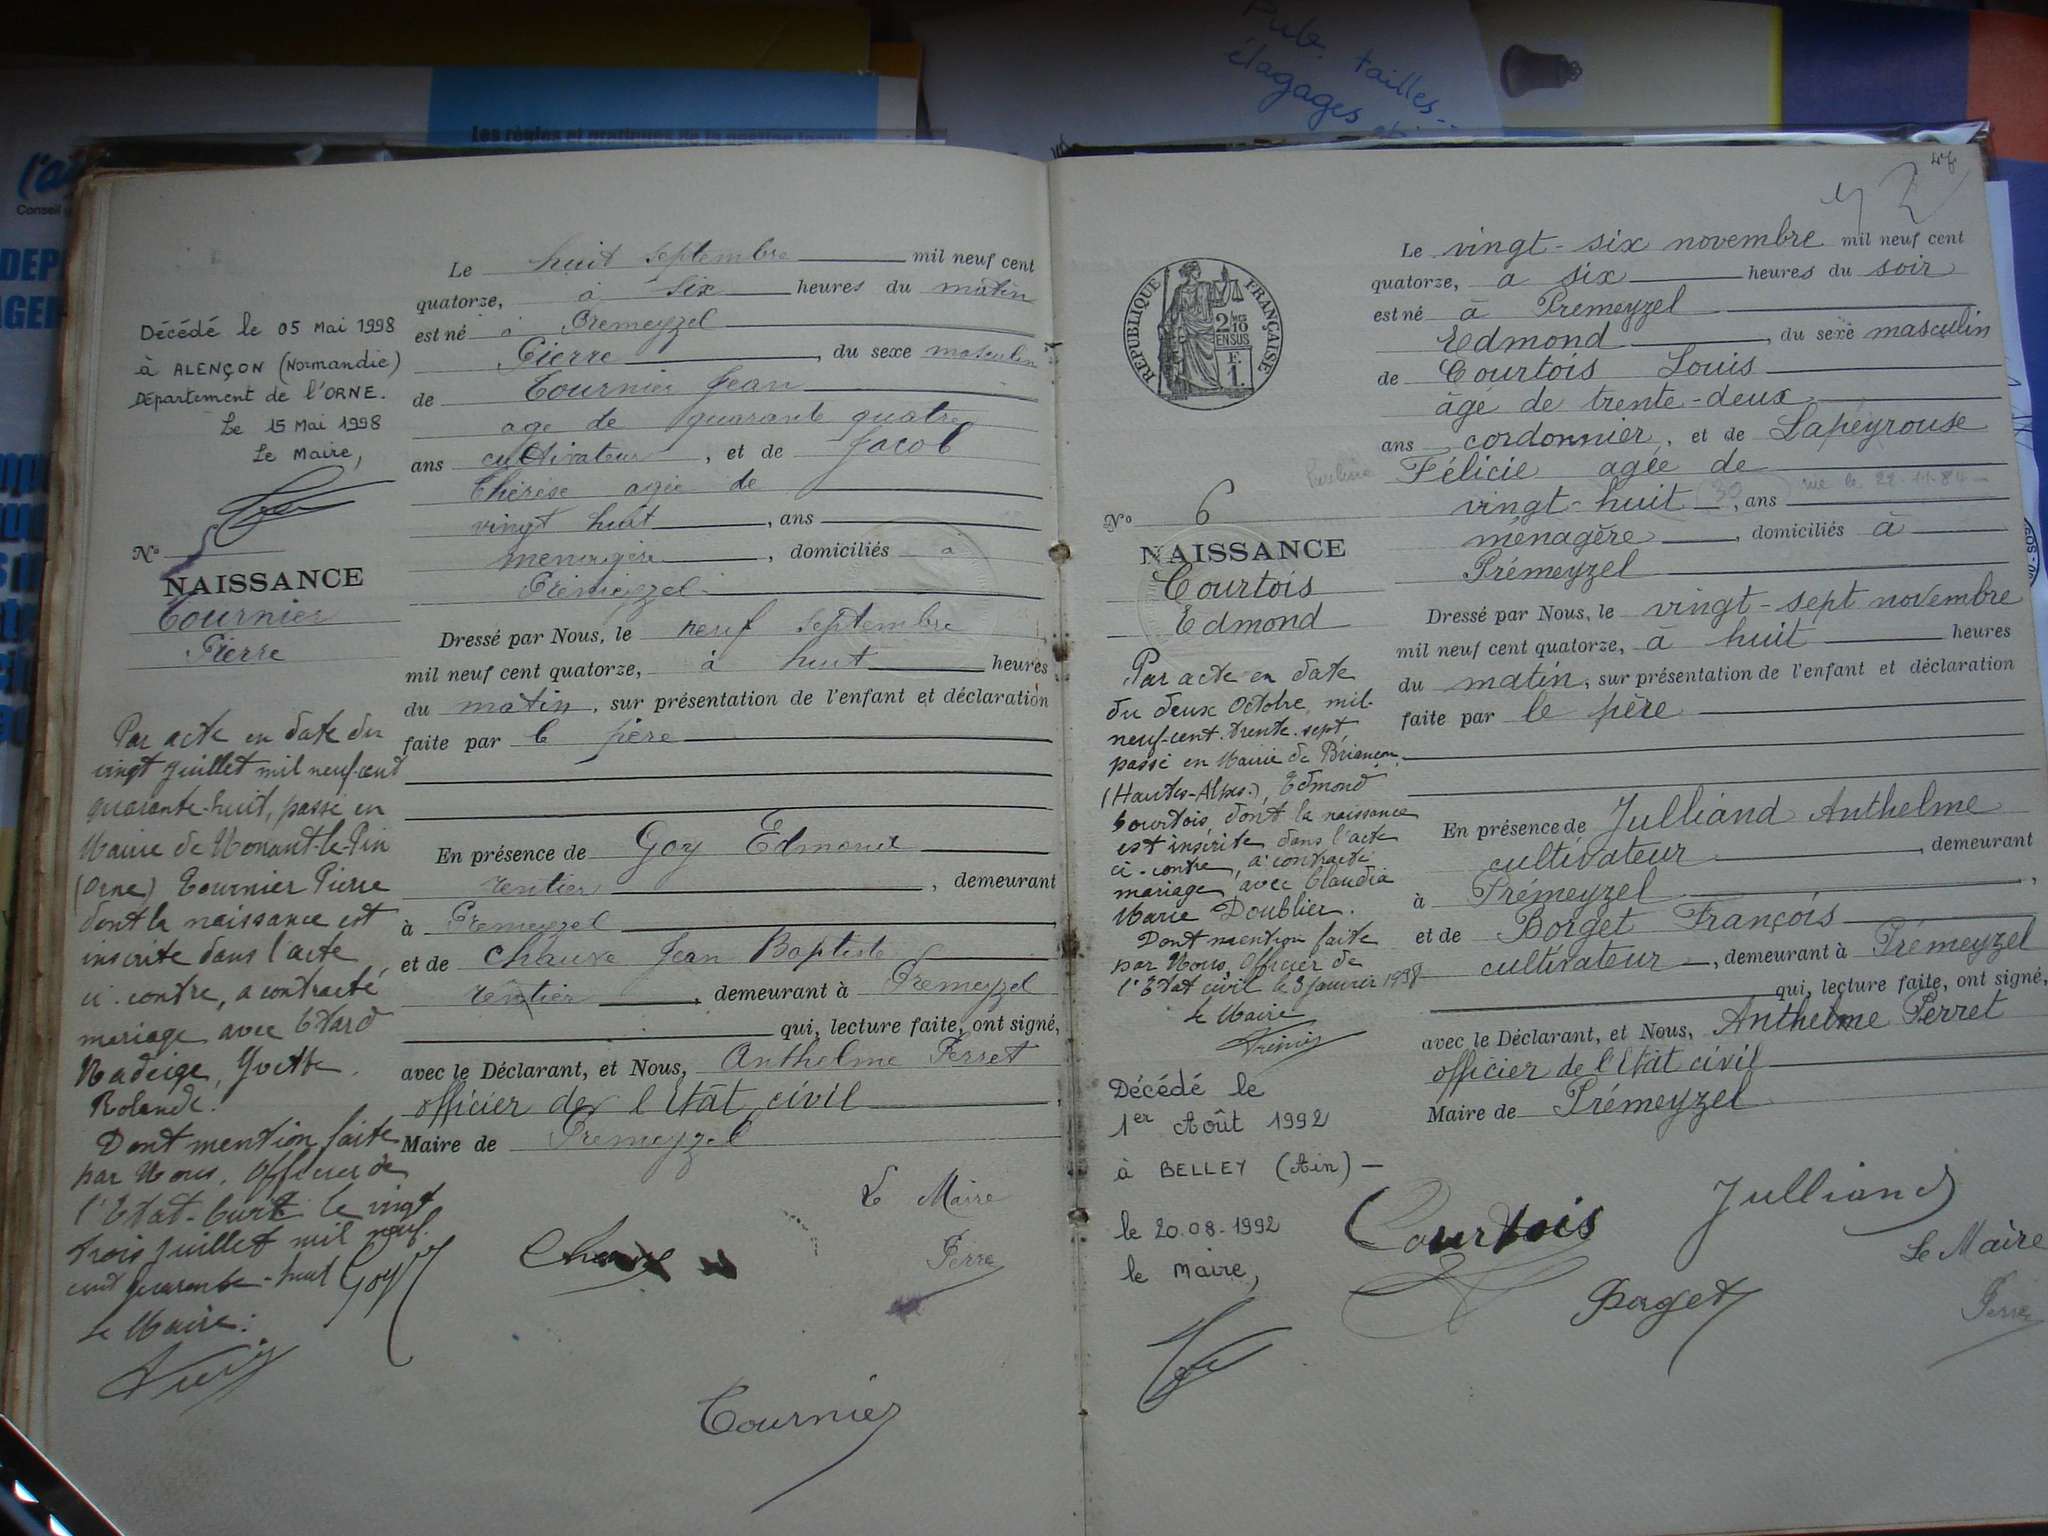 Pub. tailles...
élagages
Les règles et pratiques de la gestion locale
l'a
Conseil
DEP
AGE
Décédé le 05 Mai 1998
à ALENÇON (Normandie)
Département de l'ORNE.
Le 15 Mai 1998
Le Maire,
No
NAISSANCE
Tournier
Pierre
Par acte en date du
vingt Juillet mil neuf-cent
quarante-huit, passé en
Mairie de Nonant-le-Pin
(Orne) Tournier Pierre
dont la naissance est
inscrite dans l'acte
ci-contre, a contracté
mariage avec Etard
Nadeige, Yvette
Rolande.
Dont mention faite
par Nous, Officier de
l'Etat-Civil le vingt
trois juillet mil neuf.
cent quarante-huit
Le Maire:
Le huit septembre mil neuf cent
quatorze, à six heures du matin
est né à Premeyzel
Pierre, du sexe masculin
de Tournier Jean
age de quarante quatre
ans cultivateur, et de Jacob
Thérèse agée de
vingt huit, ans
menagère, domiciliés à
Prémeyzel
Dressé par Nous, le neuf septembre
mil neuf cent quatorze, à huit heures
du matin, sur présentation de l'enfant et déclaration
faite par le père
En présence de Goy Edmond
rentier, demeurant
à Premeyzel
et de Chauve Jean Baptiste
rentier, demeurant à Premeyzel
qui, lecture faite, ont signé,
avec le Déclarant, et Nous, Anthelme Perret
officier de l'Etat civil
Maire de Premeyzel
Le Maire
Goy
Perre
Tournier
72
RÉPUBLIQUE FRANÇAISE
2/10
EN SUS
F.
1.
No 6
NAISSANCE
Courtois
Edmond
Par acte en date
du deux Octobre mil-
neuf-cent-trente-sept
passé en Mairie de Briançon
(Hautes-Alpes), Edmond
Courtois, dont la naissance
est inscrite dans l'acte
ci-contre, a contracté
mariage avec Claudia
Marie Doublier.
Dont mention faite
par Nous, Officier de
l'Etat civil le 3 janvier 1938
Le Maire
Décédé le
1er Août 1992
à BELLEY (Ain) -
le 20.08-1992
le Maire,
Le vingt-six novembre mil neuf cent
quatorze, a six heures du soir
est né à Premeyzel
Edmond, du sexe masculin
de Courtois Louis
âge de trente-deux
ans cordonnier, et de Lapeyrouse
Félicie agée de
vingt-huit (30), ans
ménagère, domiciliés à
Prémeyzel
Dressé par Nous, le vingt-sept novembre
mil neuf cent quatorze, à huit heures
du matin, sur présentation de l'enfant et déclaration
faite par le père
En présence de Julliand Anthelme
cultivateur, demeurant
à Prémeyzel,
et de Borget François
cultivateur, demeurant à Prémeyzel
qui, lecture faite, ont signé,
avec le Déclarant, et Nous, Anthelme Perret
officier de l'Etat civil
Maire de Prémeyzel
Courtois
Julliand
Le Maire
Borget
Perre